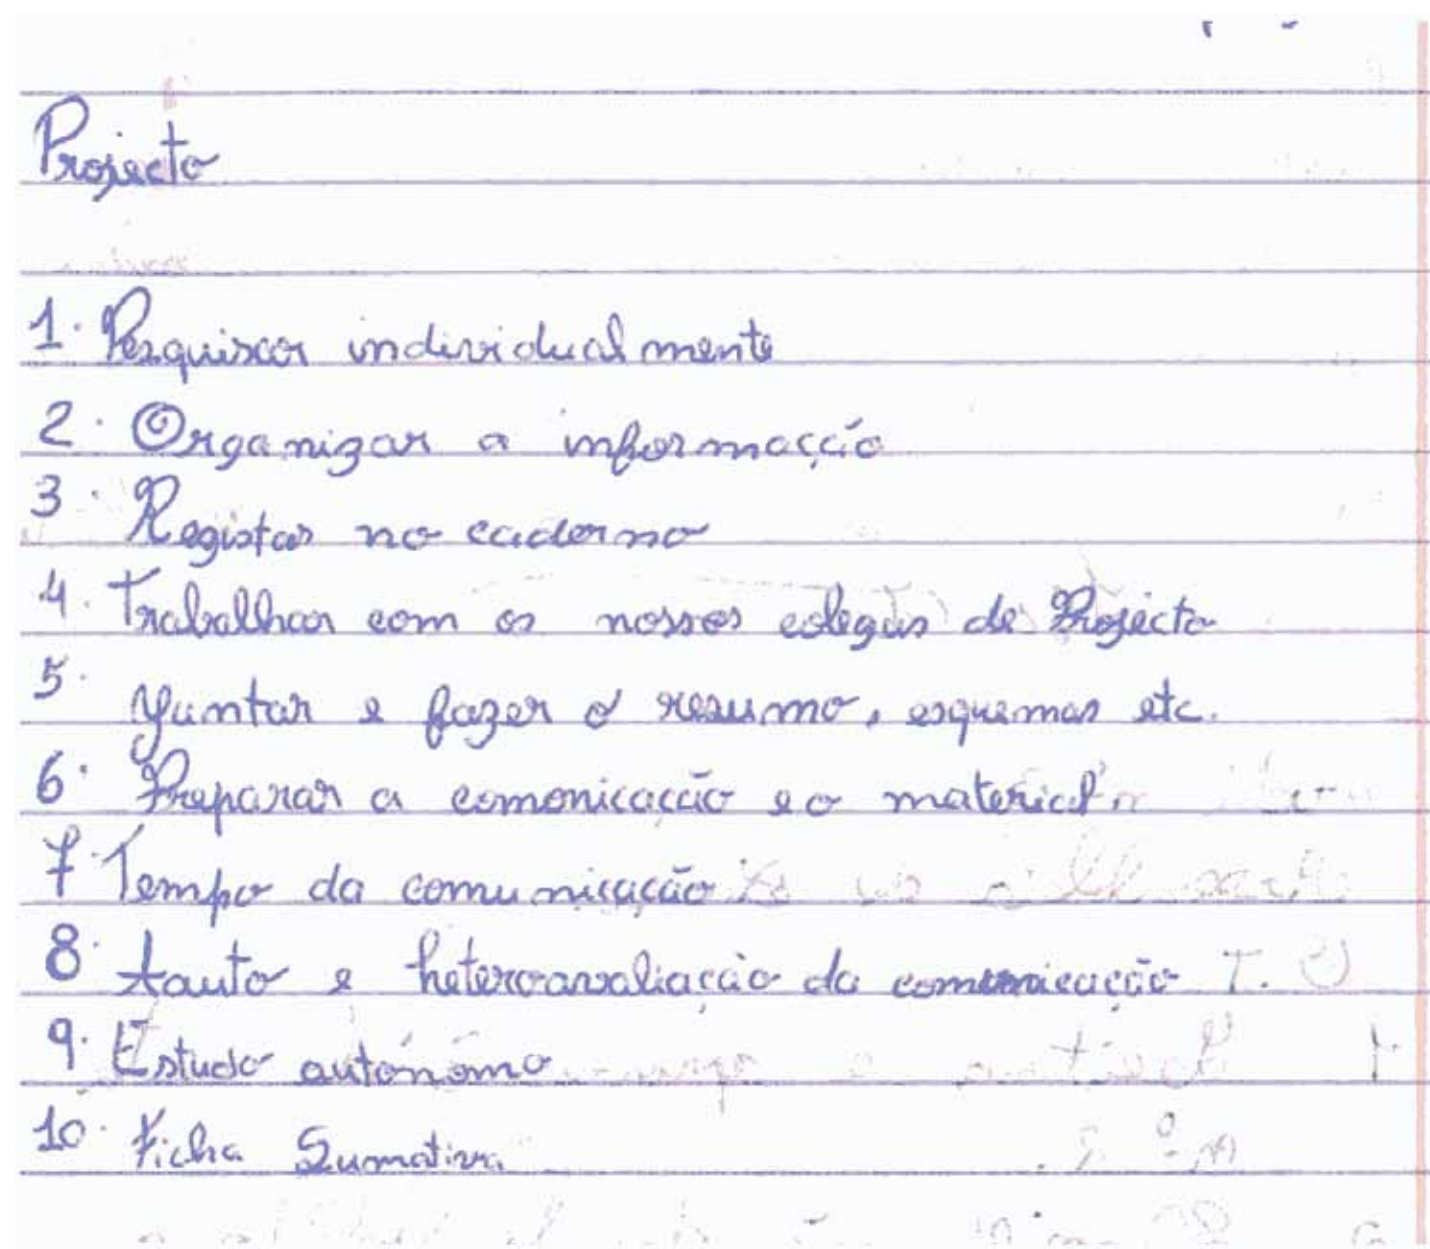 Projecto
1. Pesquisar individualmente
2. Organizar a informação
3. Registar no caderno
4. Trabalhar com os nossos colegas de Projecto
5. Juntar e fazer o resumo, esquemas etc.
6. Preparar a comonicação e o material
7. Tempo da comunicação
8. Aauto e heteroavaliação da comunicação
9. Estudo autónomo
10. Ficha Sumativa